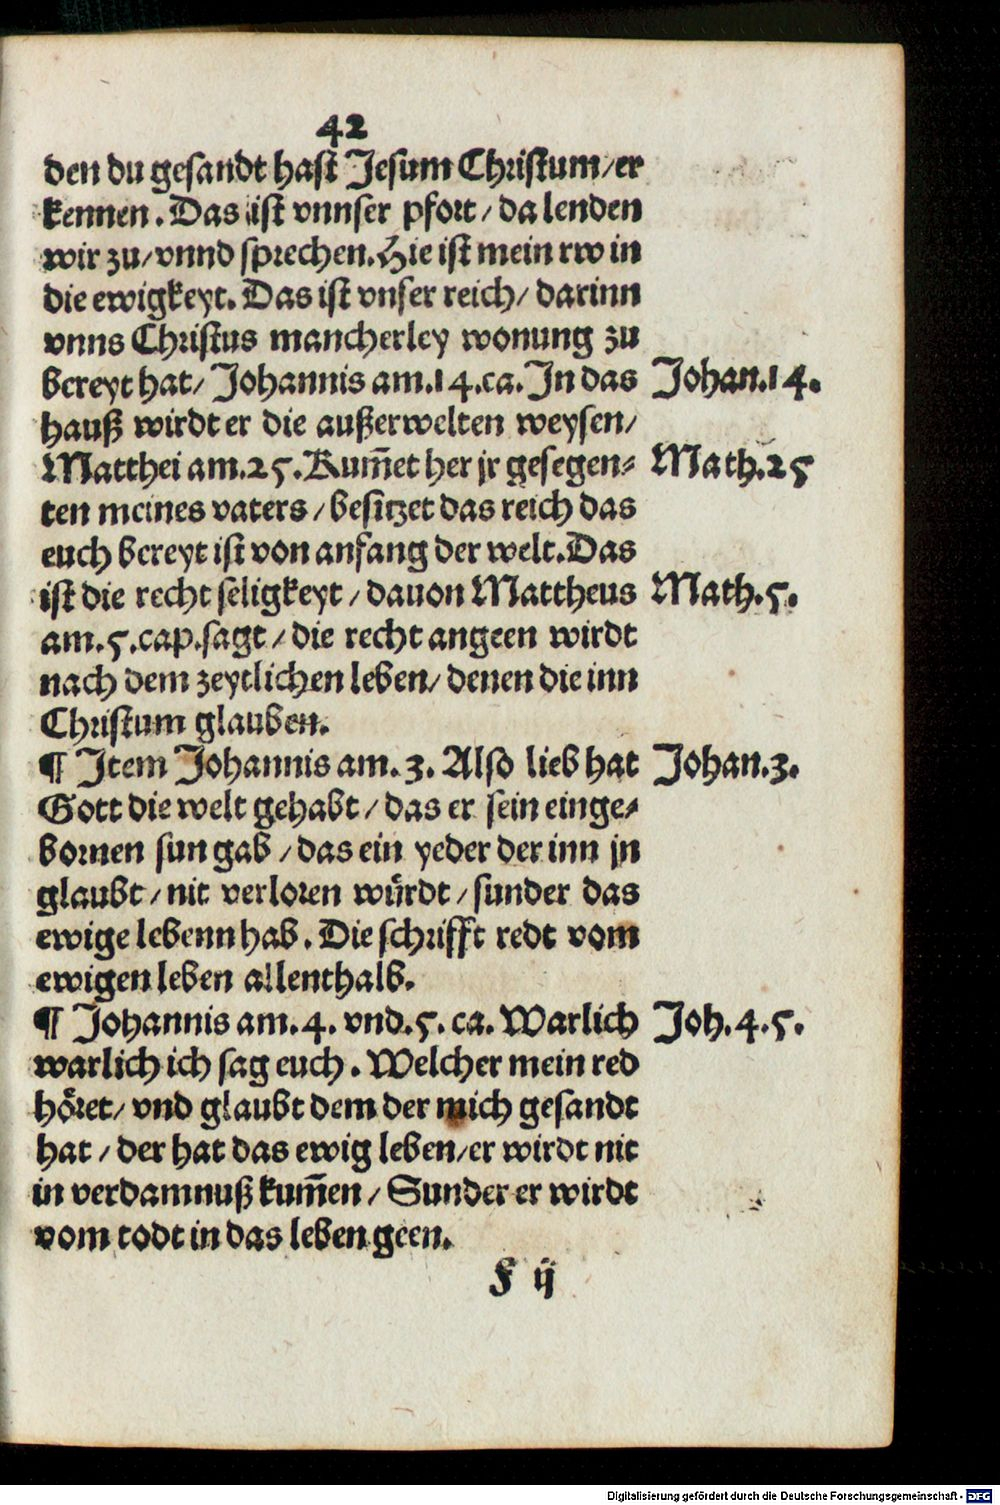 42
den du gesandt hast Jesum Christum/er
kennen. Das ist vnnser pfort/ da lenden
wir zu/vnnd sprechen. Hie ist mein rw in
die ewigkeyt. Das ist vnser reich/ darinn
vnns Christus mancherley wonung zu
bereyt hat/ Johannis am.14.ca. In das Johan.14.
hauß wirdt er die außerwelten weysen/
Matthei am.25. Kum̄et her jr gesegen⸗ Math.25
ten meines vaters/ besitzet das reich das
euch bereyt ist von anfang der welt. Das
ist die recht seligkeyt/ dauon Mattheus Math.5.
am.5.cap.sagt/ die recht angeen wirdt
nach dem zeytlichen leben/ denen die inn
Christum glauben.
¶ Item Johannis am.3. Also lieb hat Johan.3.
Gott die welt gehabt/ das er sein einge⸗
bornen sun gab/ das ein yeder der inn jn
glaubt/ nit verloren wuͤrdt/ sunder das
ewige lebenn hab. Die schrifft redt vom
ewigen leben allenthalb.
¶ Johannis am.4. vnd.5. ca. Warlich Joh.4.5.
warlich ich sag euch. Welcher mein red
hoͤret/ vnd glaubt dem der mich gesandt
hat/ der hat das ewig leben/er wirdt nit
in verdamnuß kum̄en/ Sunder er wirdt
vom todt in das leben geen.
F ij
Digitalisierung gefördert durch die Deutsche Forschungsgemeinschaft - DFG